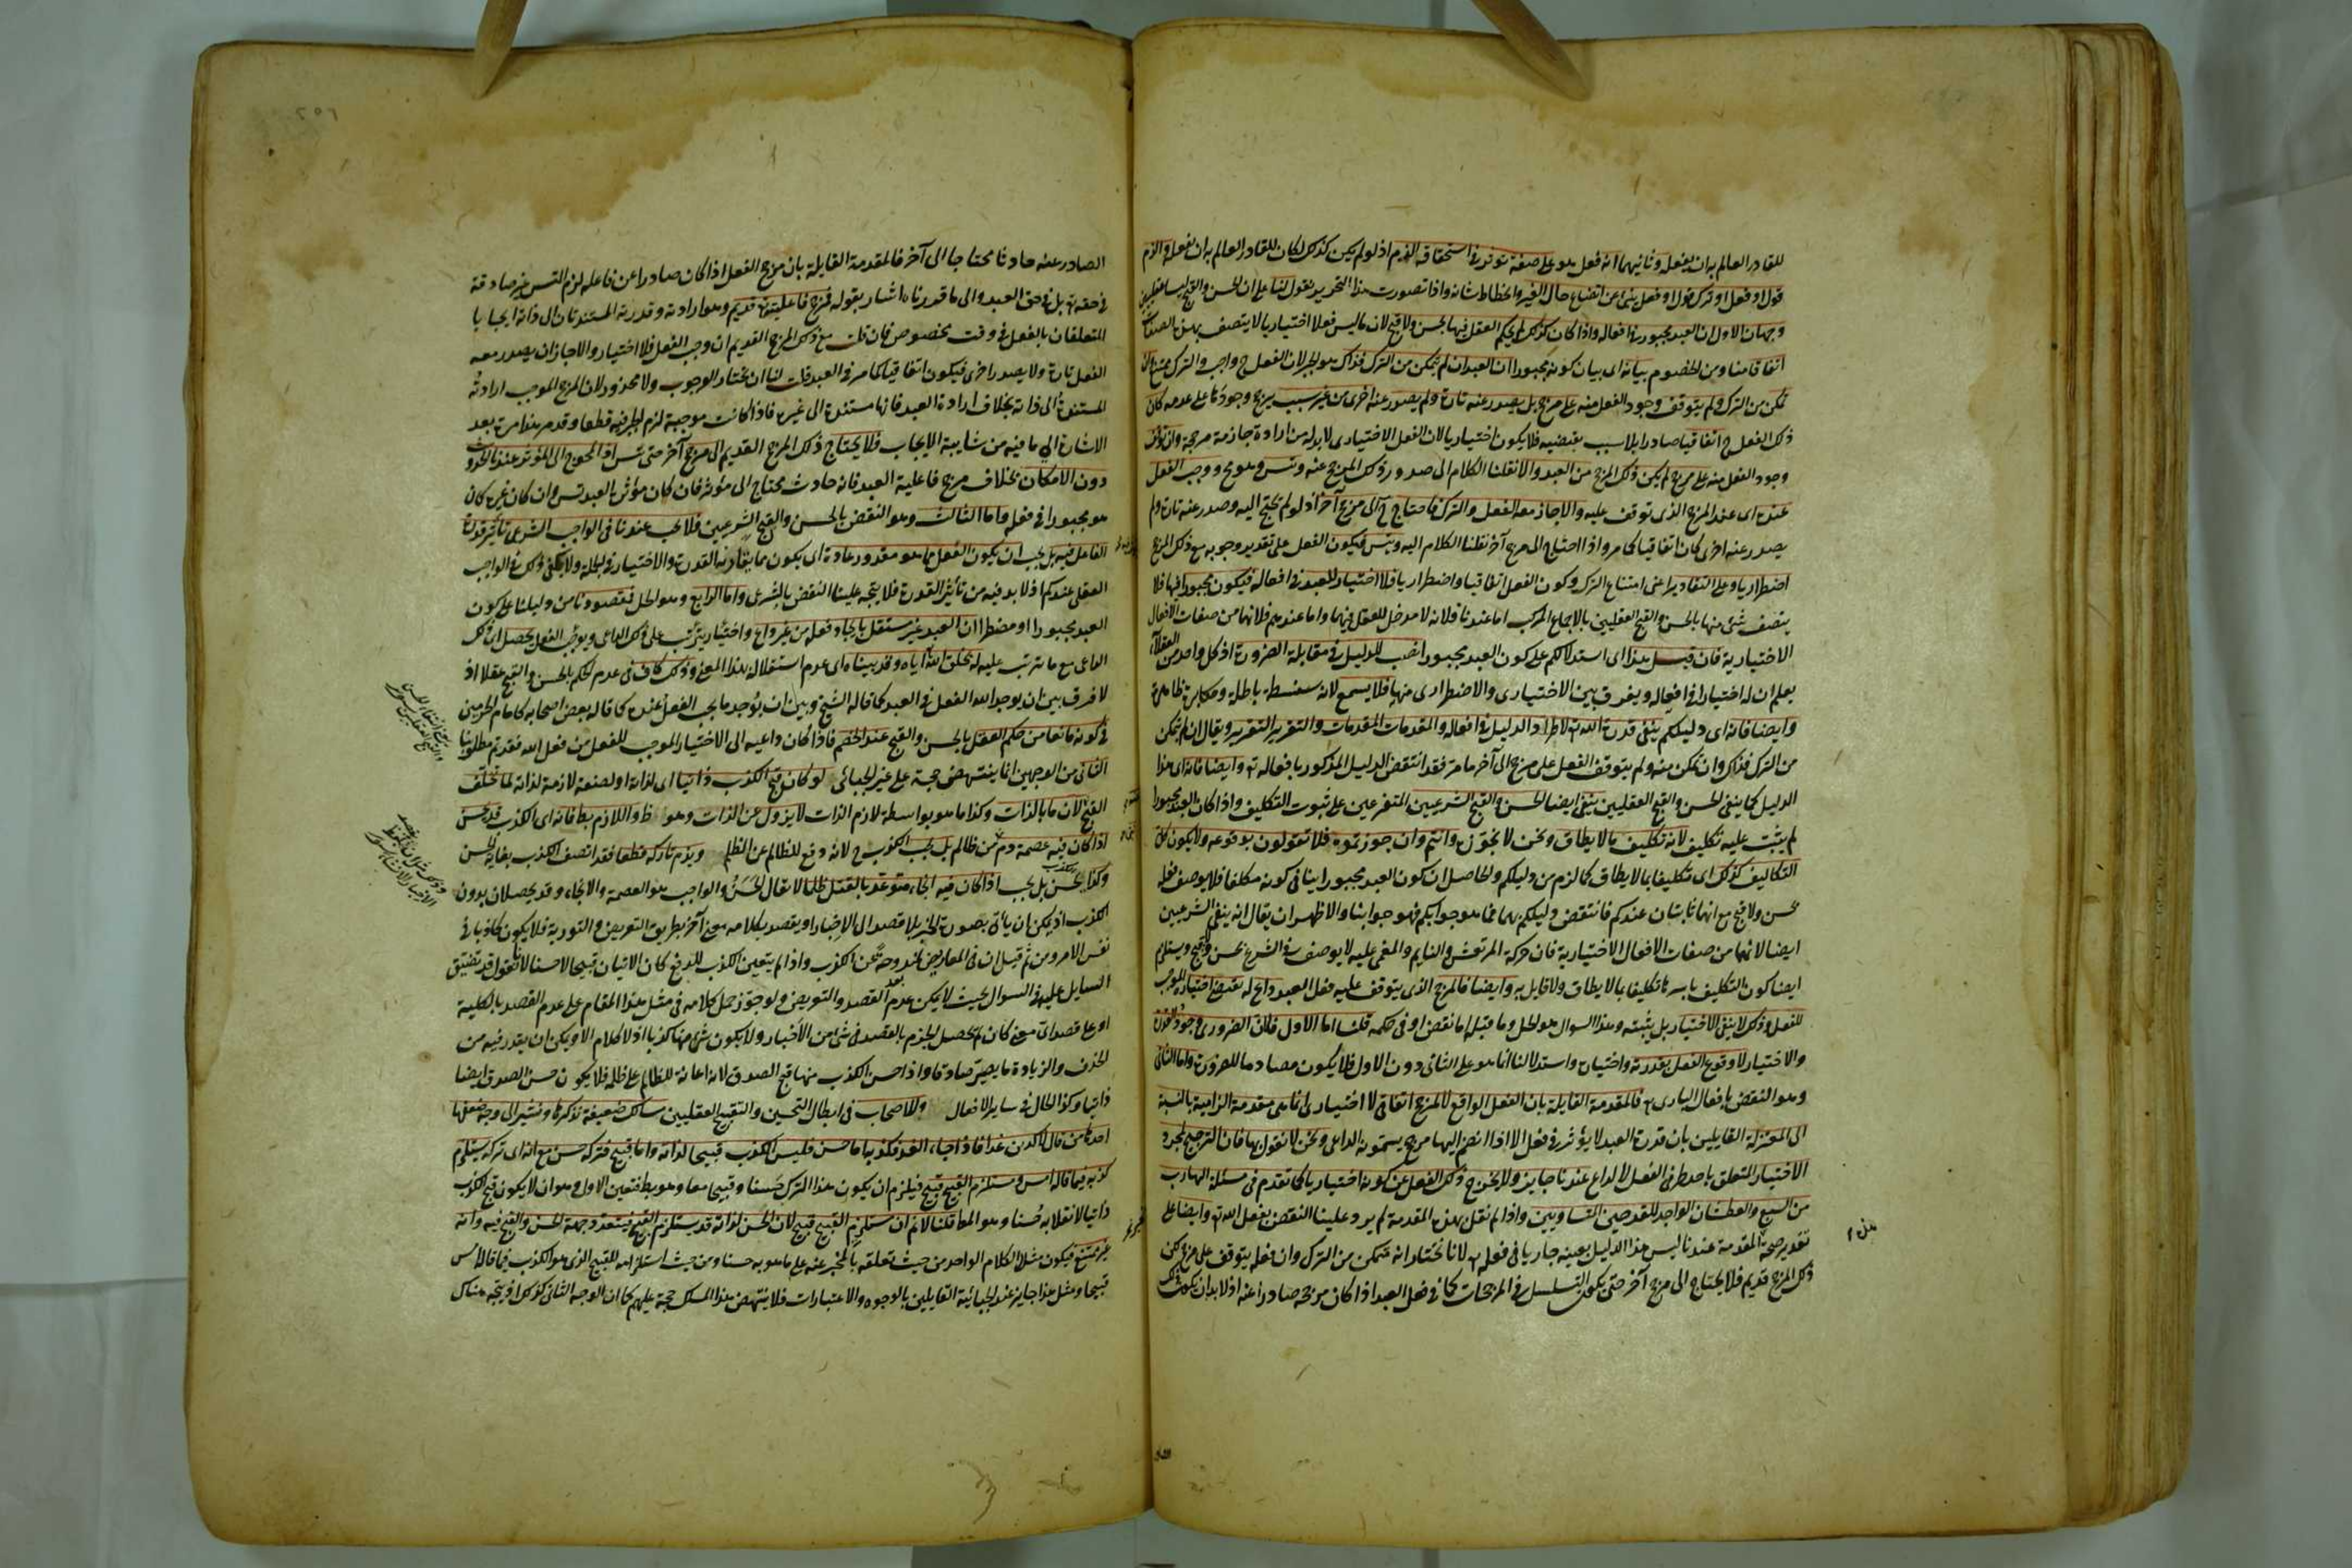 للقادر العالم به ان يفعله وثانيهما انه فعل هو على صفة تؤثر فى استحقاق الذم اذ لو لم يكن كذلك لكان للقادر العالم به ان يفعله والذم
قول او فعل او ترك قول او فعل ينبئ عن اتضاع حال الغير وانحطاط شانه واذا تصورت هذا التحرير نقول لنا على ان الحسن والقبح ليسا عقليين
وجهان الاول ان العبد مجبور فى افعاله واذا كان كذلك لم يحكم العقل فيها بحسن ولا قبح لان ما ليس فعلا اختياريا لا يتصف بهذه الصفات
اتفاقا منا ومن الخصوم بيانه اى بيان كونه مجبورا ان العبد ان لم يتمكن من الترك فذاك هو الجبر لان الفعل ح واجب والترك ممتنع وان
تمكن من الترك ولم يتوقف وجود الفعل منه على مرجح بل يصدر عنه تارة ولم يصدر عنه اخرى من غير سبب يرجح وجوده على عدمه كان
ذلك الفعل ح اتفاقيا صادرا بلا سبب يقتضيه فلا يكون اختياريا لان الفعل الاختيارى لا بد له من ارادة جازمة مرجحة وان توقف
وجود الفعل منه على مرجح لم يكن ذلك المرجح من العبد والا نقلنا الكلام الى صدور ذلك المرجح عنه وتس وهو مح ووجب الفعل
عنده اى عند المرجح الذى توقف عليه والا جاز معه الفعل والترك فاحتاج ح الى مرجح آخر اذ لو لم يحتج اليه وصدر عنه تارة ولم
يصدر عنه اخرى كان اتفاقيا كما مر واذا احتاج الى مرجح آخر نقلنا الكلام اليه وتس فيكون الفعل على تقدير وجوبه مع ذلك المرجح
اضطراريا وعلى التقادير اعنى امتناع الترك وكون الفعل اتفاقيا واضطراريا فلا اختيار للعبد فى افعاله فيكون مجبورا فيها فلا
يتصف شئ منها بالحسن والقبح العقليين بالاجماع المركب اما عندنا فلانه لا مدخل للعقل فيهما واما عندهم فلانهما من صفات الافعال
الاختيارية فان قيل هذا اى استدلالكم على كون العبد مجبورا نصب للدليل فى مقابلة الضرورة اذ كل واحد من العقلاء
يعلم ان له اختيارا فى افعاله ويفرق بين الاختيارى والاضطرارى منها فلا يسمع لانه سفسطة باطلة ومكابرة ظاهرة
وايضا فانه اى دليلكم ينفى قدرة الله تع لاطراد الدليل فى افعاله والمقدمات المقدمات والتقرير التقرير ويقال ان لم يتمكن
من الترك فذاك وان تمكن منه ولم يتوقف الفعل على مرجح الى آخر ما مر فقد انتقض الدليل المذكور بافعاله تع وايضا فانه اى هذا
الدليل كما ينفى الحسن والقبح العقليين ينفى ايضا الحسن والقبح الشرعيين المتفرعين على ثبوت التكليف واذا كان العبد مجبورا
لم يثبت عليه تكليف لانه تكليف ما لا يطاق ونحن لا نجوزه وانتم وان جوزتموه فلا تقولون بوقوعه ولا يكون كل
التكاليف كذلك اى تكليفا بما لا يطاق كما لزم من دليلكم والحاصل ان كون العبد مجبورا ينافى كونه مكلفا فلا يوصف فعله
بحسن ولا قبح مع انهما ثابتان عندكم فانتقض دليلكم بهما فما هو جوابكم فهو جوابنا والاظهر ان يقال انه ينفى الشرعيين
ايضا لانهما من صفات الافعال الاختيارية فان حركة المرتعش والنايم والمغمى عليه لا يوصف فى الشرع بحسن وقبح ويستلزم
ايضا كون التكليف باسره تكليفا بما لا يطاق ولا قايل به وايضا فالمرجح الذى يتوقف عليه فعل العبد داع له يقتضى اختياره الموجب
للفعل وذلك لا ينفى الاختيار بل يثبته وهذا السوال هو الحل وما قبله اما نقض او فى حكمه قلنا اما الاول فلان الضرورى وجود القدرة
والاختيار لا وقوع الفعل بقدرته واختياره واستدلالنا انما هو على الثانى دون الاول فلا يكون مصادما للضرورة واما الثانى
وهو النقض بافعال البارى تع فالمقدمة القايلة بان الفعل الواقع لا لمرجح اتفاقى لا اختيارى انما هى مقدمة الزامية بالنسبة
الى المعتزلة القايلين بان قدرة العبد لا يؤثر فى فعل الا اذا انضم اليها مرجح يسمونه الداعى ونحن لا نقول بها فان الترجيح بمجرد
الاختيار المتعلق باحد طرفى الفعل لا لداع عندنا جايز ولا يخرج ذلك الفعل عن كونه اختياريا كما تقدم فى مسئلة الهارب
من السبع والعطشان الواجد للقدحين المتساويين واذا لم نقل بهذه المقدمة لم يرد علينا النقض بفعل الله تع وايضا على
تقدير صحة المقدمة عندنا ليس هذا الدليل بعينه جاريا فى فعله تع لانا نختار انه متمكن من الترك وان فعله يتوقف على مرجح لكن
ذلك المرجح قديم فلا يحتاج الى مرجح آخر حتى يكون التسلسل فى المرجحات كما فى فعل العبد اذا كان مرجحه صادرا عنه اذ لا بد ان يكون ذلك
الصادر عنه حادثا محتاجا الى آخر فالمقدمة القايلة بان مرجح الفعل اذا كان صادرا عن فاعله لزم التس غير صادقة
فى حقه تع بل فى حق العبد والى ما قدرناه اشار بقوله فمرجح فاعليته تع قديم وهو ارادته وقدرته المستندتان الى ذاته ايجابا
المتعلقان بالفعل فى وقت مخصوص فان قلت مع ذلك المرجح القديم ان وجب الفعل فلا اختيار والا جاز ان يصدر معه
الفعل تارة ولا يصدر اخرى فيكون اتفاقيا كما مر فى العبد قلت لنا ان نختار الوجوب ولا محذور لان المرجح الموجب ارادته
المستندة الى ذاته بخلاف ارادة العبد فانها مستندة الى غيره فاذا كانت موجبة لزم الجبر فيه قطعا وقد مر هذا مرة بعد
الاشارة الى ما فيه من شايبة الايجاب فلا يحتاج ذلك المرجح القديم الى مرجح آخر حتى تس اذ المحوج الى المؤثر عندنا الحدوث
دون الامكان بخلاف مرجح فاعلية العبد فانه حادث يحتاج الى مؤثر فان كان مؤثره العبد تس وان كان غيره كان
هو مجبورا فى فعله واما الثالث وهو النقض بالحسن والقبح الشرعيين فلا يجب عندنا فى الواجب الشرعى تاثير قدرة
الفاعل فيه بل يجب ان يكون الفعل مما هو مقدور عادة اى يكون مما يقارنه القدرة والاختيار فى الجملة ولا يكفى ذلك فى الواجب
العقلى عندكم اذ لا بد فيه من تأثير القدرة فلا يتجه علينا النقض بالشرعى واما الرابع وهو الحل فمقصودنا من دليلنا على كون
العبد مجبورا او مضطرا ان العبد غير مستقل بايجاد فعله من غير داع واختيار يترتب على ذلك الداعى ويوجب الفعل يحصل اى ذلك
الداعى مع ما ترتب عليه له بخلق الله اياه وقد بيناه اى عدم استقلاله بهذا المعنى وذلك كاف فى عدم الحكم بالحسن والقبح عقلا اذ
لا فرق بين ان يوجد الله الفعل فى العبد كما قاله الشيخ وبين ان يوجد ما يجب الفعل عنده كما قاله بعض اصحابه كامام الحرمين
فى كونه مانعا من حكم العقل بالحسن والقبح عند الخصم فاذا كان داعيه الى الاختيار الموجب للفعل من فعل الله فقد تم مطلوبنا
الثانى من الوجهين انما ينتهض حجة على غير الجبائى لو كان قبح الكذب ذاتيا اى لذاته او لصفة لازمة لذاته لما تخلف
القبح لان ما بالذات وكذا ما هو بواسطة لازم الذات لا يزول عن الذات وهو ظ واللازم بط فانه اى الكذب قد يحسن
اذا كان فيه عصمة دم من ظالم بل يجب الكذب ح لانه دفع للظالم عن الظلم ويذم تاركه قطعا فقد اتصف الكذب بغاية الحسن
وكذا يحسن بل يجب اذا كان فيه انجاء متوعد بالقتل ظلما لا يقال الحسن والواجب هو العصمة والانجاء وقد يحصلان بدون
الكذب اذ يمكن ان ياتى بصورة الخبر بلا قصد الى الاخبار او يقصد بكلامه معنى آخر بطريق التعريض والتورية فلا يكون كاذبا فى
نفس الامر ومن ثم قيل ان فى المعاريض لمندوحة عن الكذب واذا لم يتعين الكذب للدفع كان الاتيان قبيحا لا حسنا لانا نقول قد تضيق
السايل عليه فى السوال بحيث لا يمكن عدم القصد والتعريض ولو جوز حمل كلامه فى مثل هذا المقام على عدم القصد بالكلية
او على قصد اى معنى كان لم يحصل الجزم بالقصد فى شئ من الاخبار ولا يكون شئ منها كذبا اذ لا كلام الا ويمكن ان يقدر فيه من
الحذف والزيادة ما يصير صادقا واذا حسن الكذب منها قبح الصدق لانه اعانة للظالم على ظلمه فلا يكون حسن الصدق ايضا
ذاتيا وكذا الحال فى ساير الافعال وللاصحاب فى ابطال التحسين والتقبيح العقليين مسالك ضعيفة نذكرها ونشير الى وجه ضعفها
احدها من قال لاكذبن غدا فاذا جاء الغد فكذبه اما حسن فليس الكذب قبيحا لذاته واما قبيح فتركه حسن مع انه اى تركه يستلزم
كذبه فيما قاله امس ومستلزم القبيح قبيح فيلزم ان يكون هذا الترك حسنا وقبيحا معا وهو بط فتعين الاول وهو ان لا يكون قبح الكذب
ذاتيا لانقلابه حسنا وهو المط قلنا لا نم ان مستلزم القبيح قبيح لان الحسن لذاته قد يستلزم القبيح فيتعدد جهة الحسن والقبح فيه وانه
غير ممتنع فيكون مثلا الكلام الواحد من حيث تعلقه بالمخبر عنه على ما هو به حسنا ومن حيث استلزامه للقبيح الذى هو الكذب فيما قاله امس
قبيحا ومثل هذا جايز عند الجبائية القايلين بالوجوه والاعتبارات فلا ينتهض هذا المسلك حجة عليهم كما ان الوجه الثانى كذلك او يتجه هناك